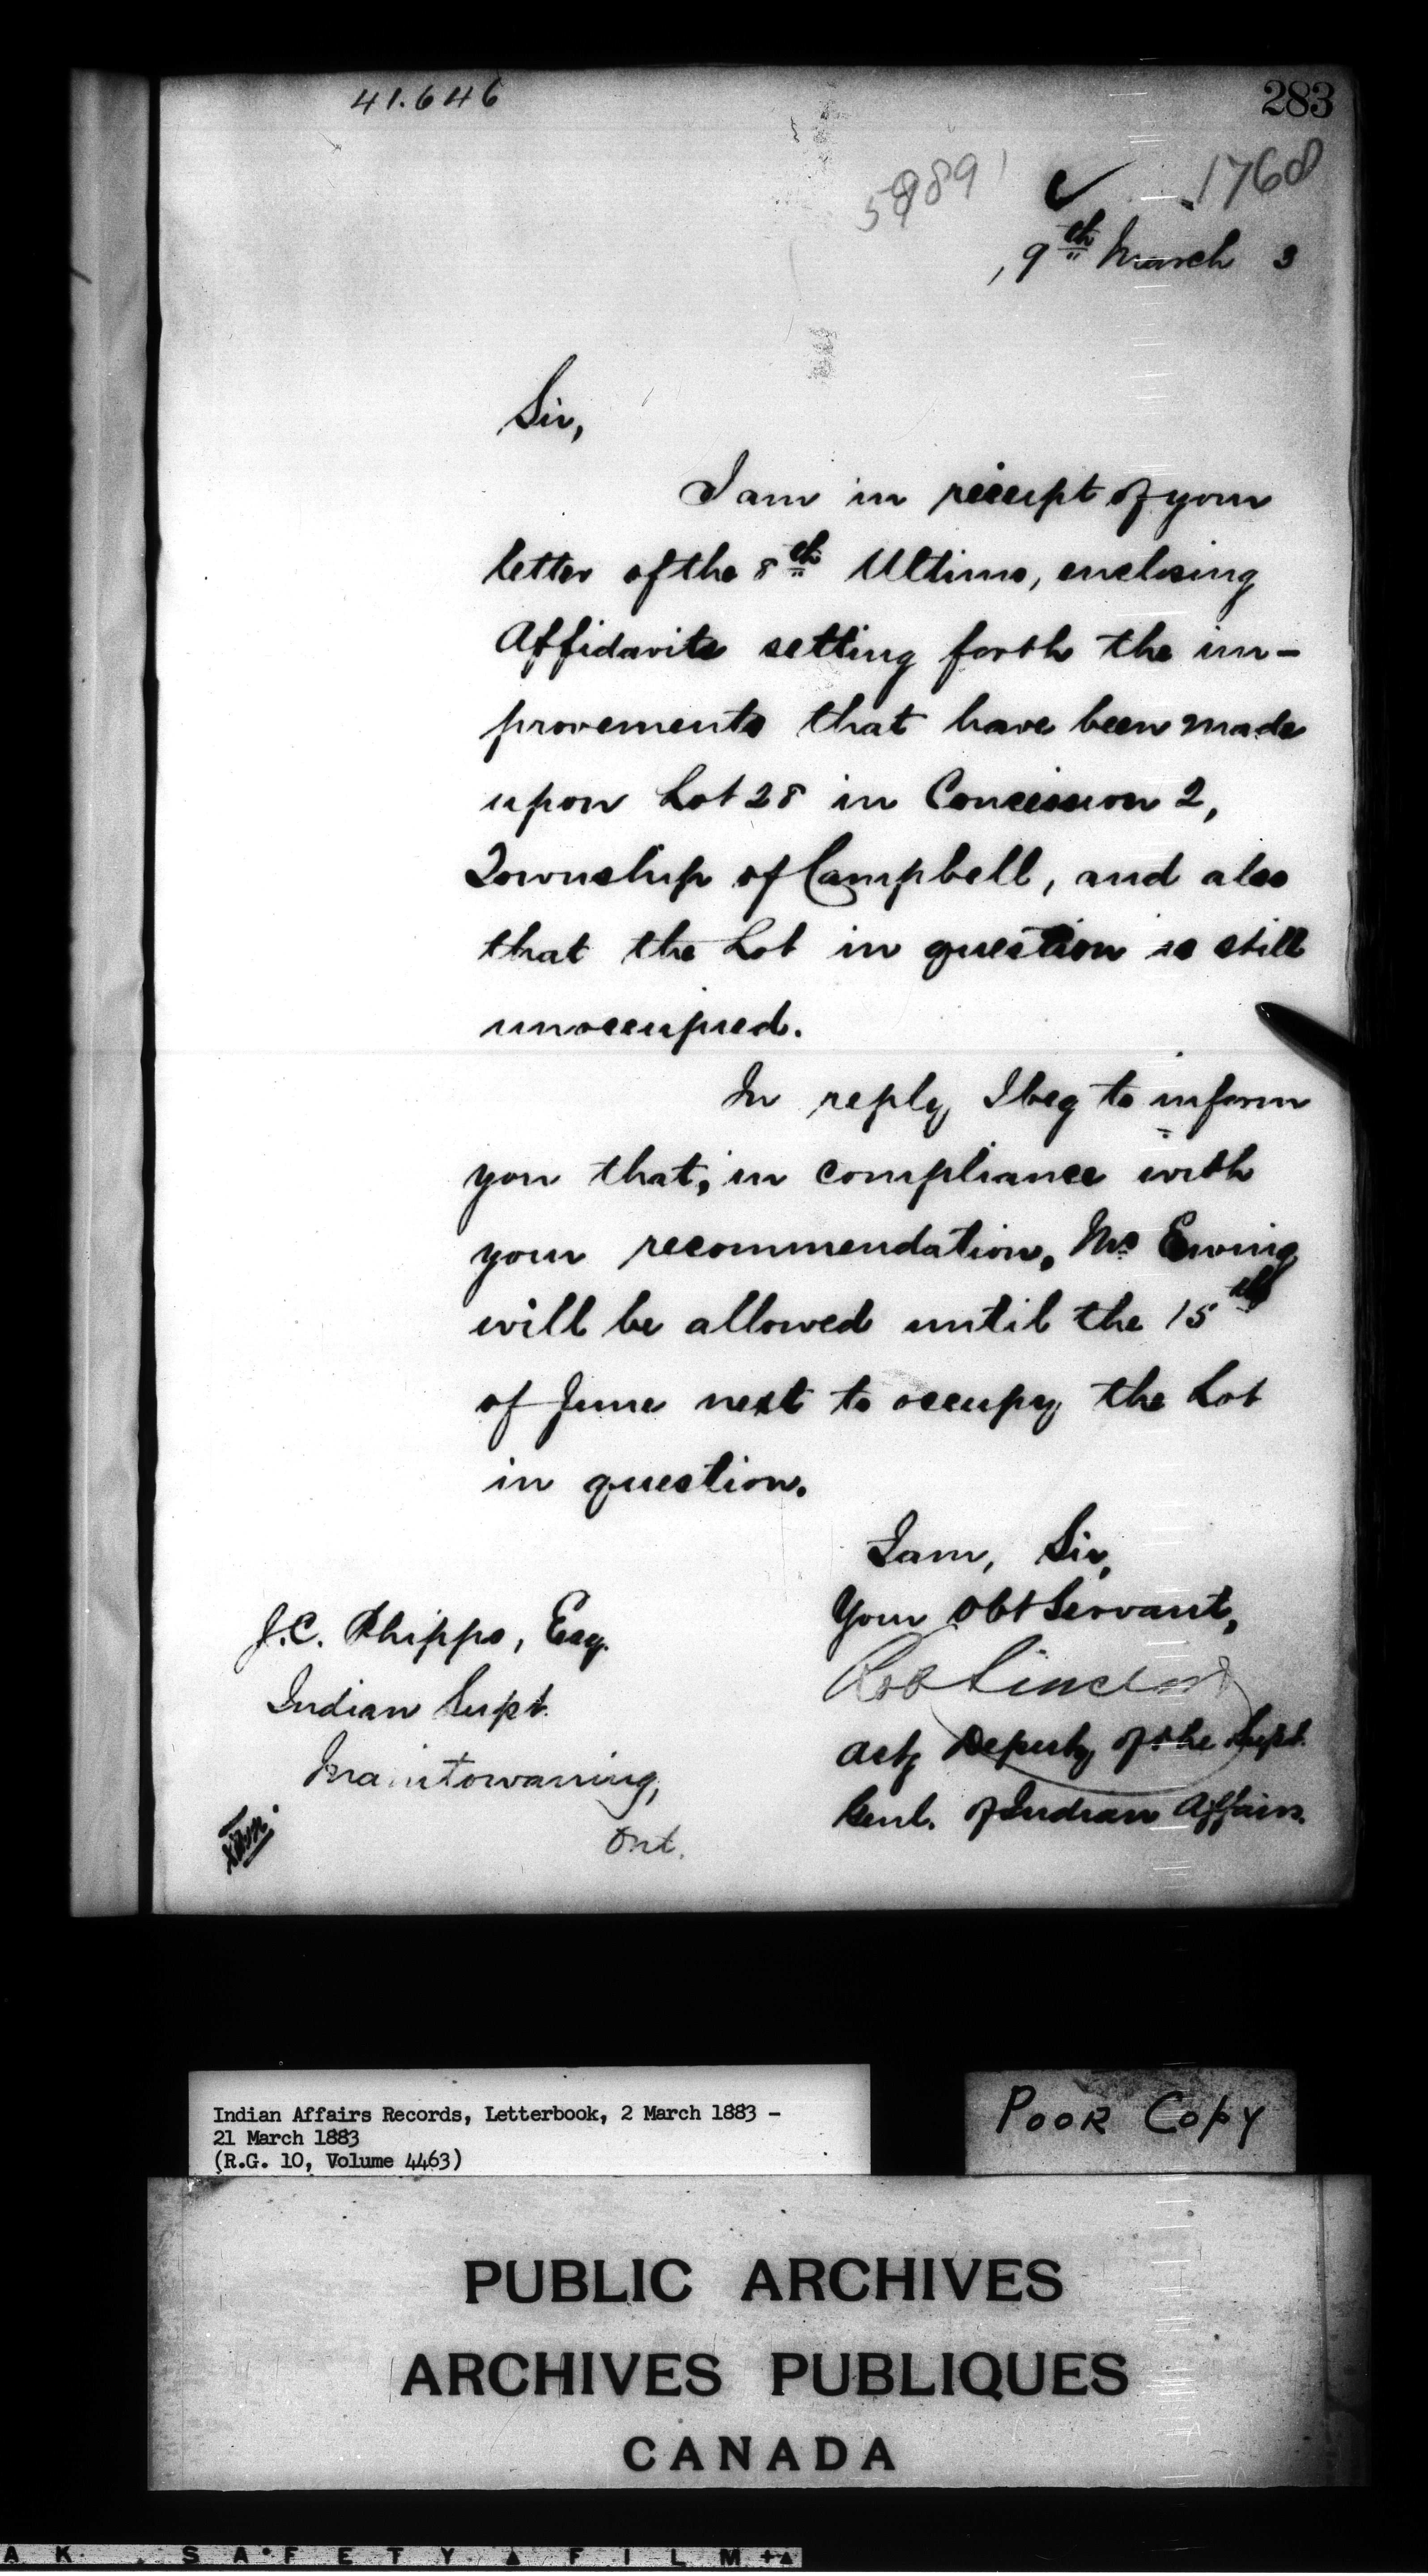 41.646
283
1768
9th March 3
Sir,
I am in receipt of your
letter of the 8th Ultimo, enclosing
Affidavits setting forth the im-
provements that have been made
upon Lot 28 in Concession 2,
Township of Campbell, and also
that the Lot in question is still
unoccupied.
In reply I beg to inform
you that, in compliance with
your recommendation, Mr Ewing
will be allowed until the 15th
of June next to occupy the Lot
in question.
I am, Sir,
Your Obt Servant,
Rob Sinclair
Actg Deputy of the Supt.
Genl. of Indian Affairs.
J.C. Phipps, Esq.
Indian Supt.
Manitowaning,
Ont.
Indian Affairs Records, Letterbook, 2 March 1883 -
21 March 1883
(R.G. 10, Volume 4463)
POOR COPY
PUBLIC ARCHIVES
ARCHIVES PUBLIQUES
CANADA
A K SAFETY FILM